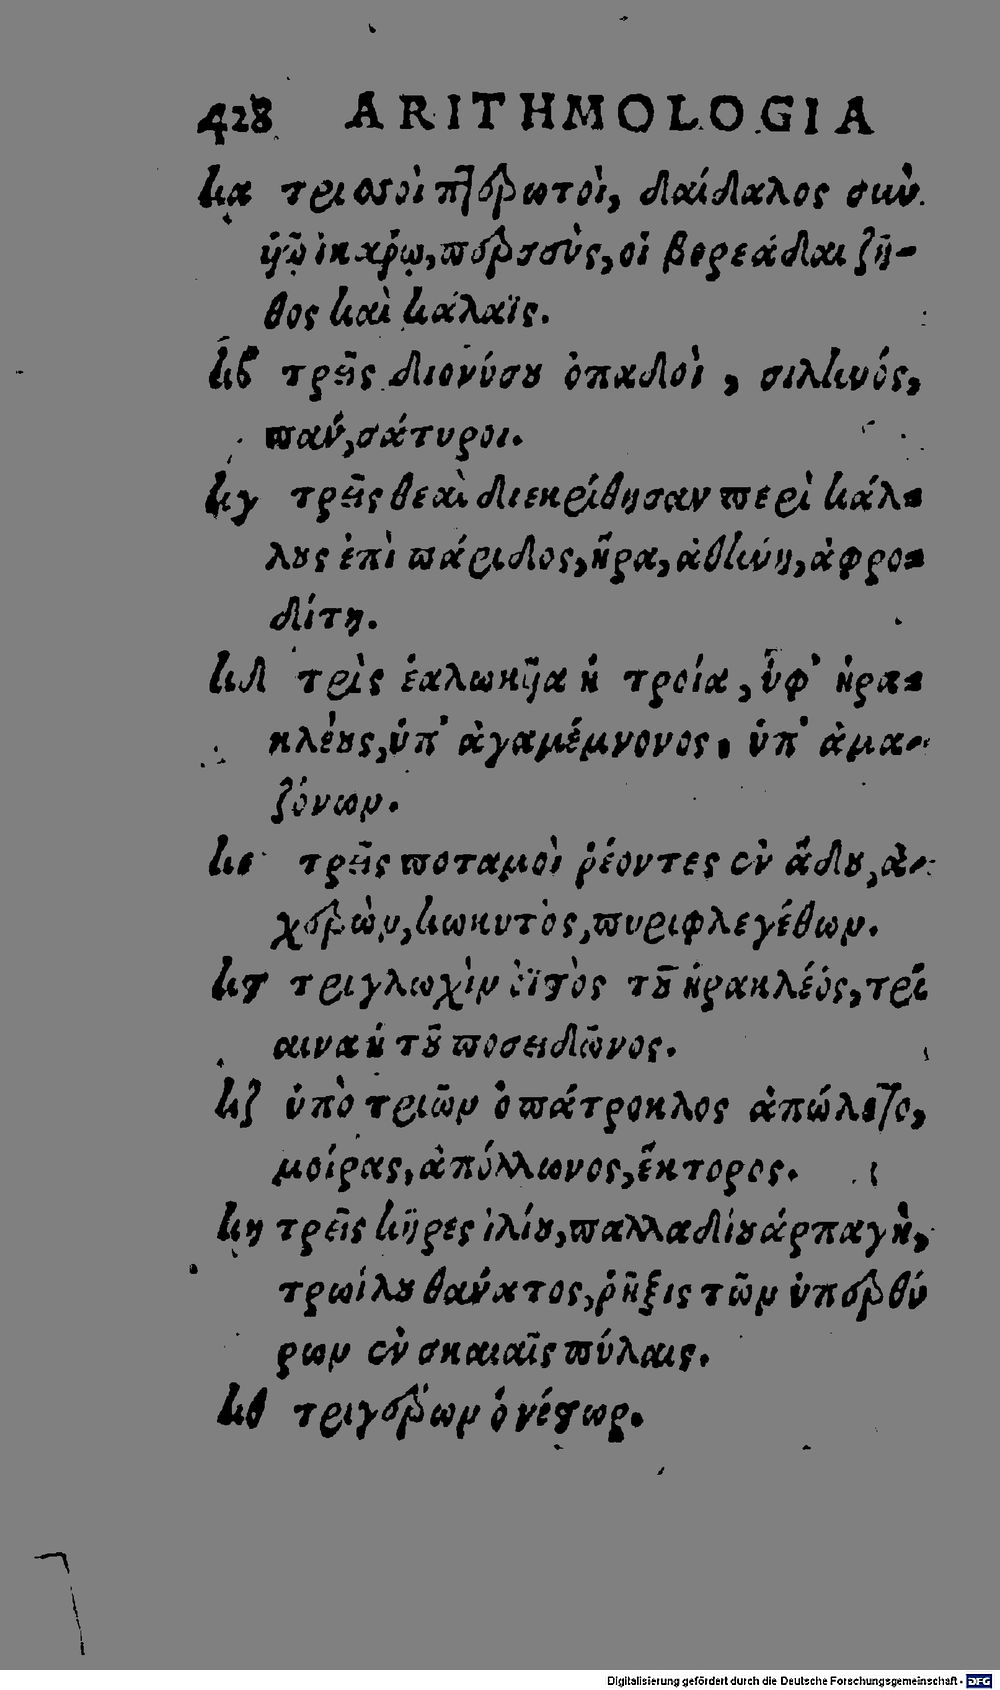 428 ARITHMOLOGIA
κα τρισσοὶ πτερωτοὶ, δαίδαλος σὺν
ἰκάρῳ, περσεὺς, οἱ βορεάδαι ζῆ-
θος καὶ κάλαϊς.
κβ τρεῖς διονύσου ὀπαδοὶ, σιληνός,
πᾶν, σάτυροι.
κγ τρεῖς θεαὶ διεκρίθησαν περὶ κάλ-
λους ἐπὶ πάριδος, ἥρα, ἀθήνη, ἀφρο-
δίτη.
κδ τρὶς ἑαλωκυῖα ἡ τροία, ὑφ' ἡρα-
κλέους, ὑπ' ἀγαμέμνονος, ὑπ' ἀμα-
ζόνων.
κε τρεῖς ποταμοὶ ῥέοντες ἐν ᾅδου, ἀ-
χέρων, κωκυτὸς, πυριφλεγέθων.
κϛ τριγλωχὶν ὀϊστὸς τοῦ ἡρακλέους, τρί
αινα ἡ τοῦ ποσειδῶνος.
κζ ὑπὸ τριῶν ὁ πάτροκλος ἀπώλετο,
μοίρας, ἀπόλλωνος, ἕκτορος.
κη τρεῖς κῆρες ἰλίου, παλλαδίου ἁρπαγὴ,
τρωίλου θάνατος, ῥῆξις τῶν ὑπερθύ
ρων ἐν σκαιαῖς πύλαις.
κθ τριγέρων ὁ νέστωρ.
Digitalisierung gefördert durch die Deutsche Forschungsgemeinschaft - DFG